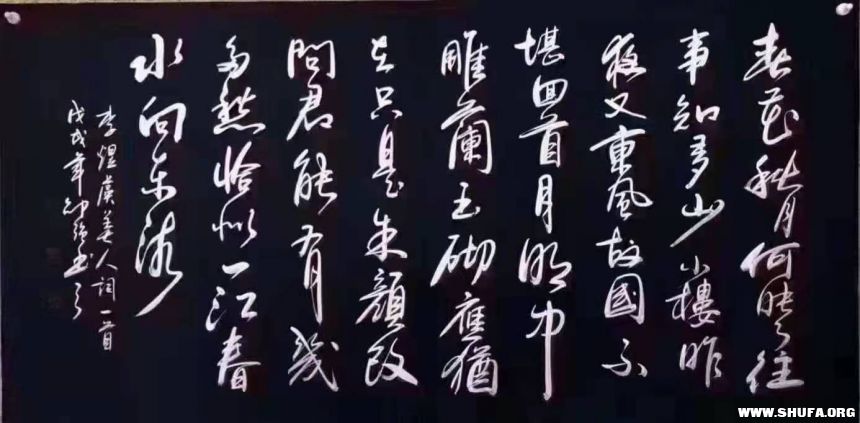 春花秋月何時了往
事知多少小樓昨
夜又東風故國不
堪回首月明中
雕蘭玉砌應猶
在只是朱顏改
問君能有幾
多愁恰似一江春
水向東流
李煜虞美人詞一首
戊戌年書
WWW.SHUFA.ORG